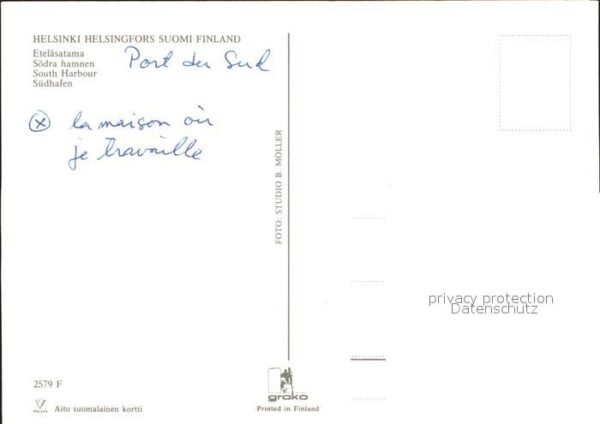 HELSINKI HELSINGFORS SUOMI FINLAND
Eteläsatama
Södra hamnen
South Harbour
Südhafen
Port du Sud
la maison où
je travaille
FOTO: STUDIO B. MÖLLER
privacy protection
Datenschutz
2579 F
Aito suomalainen kortti
grako
Printed in Finland